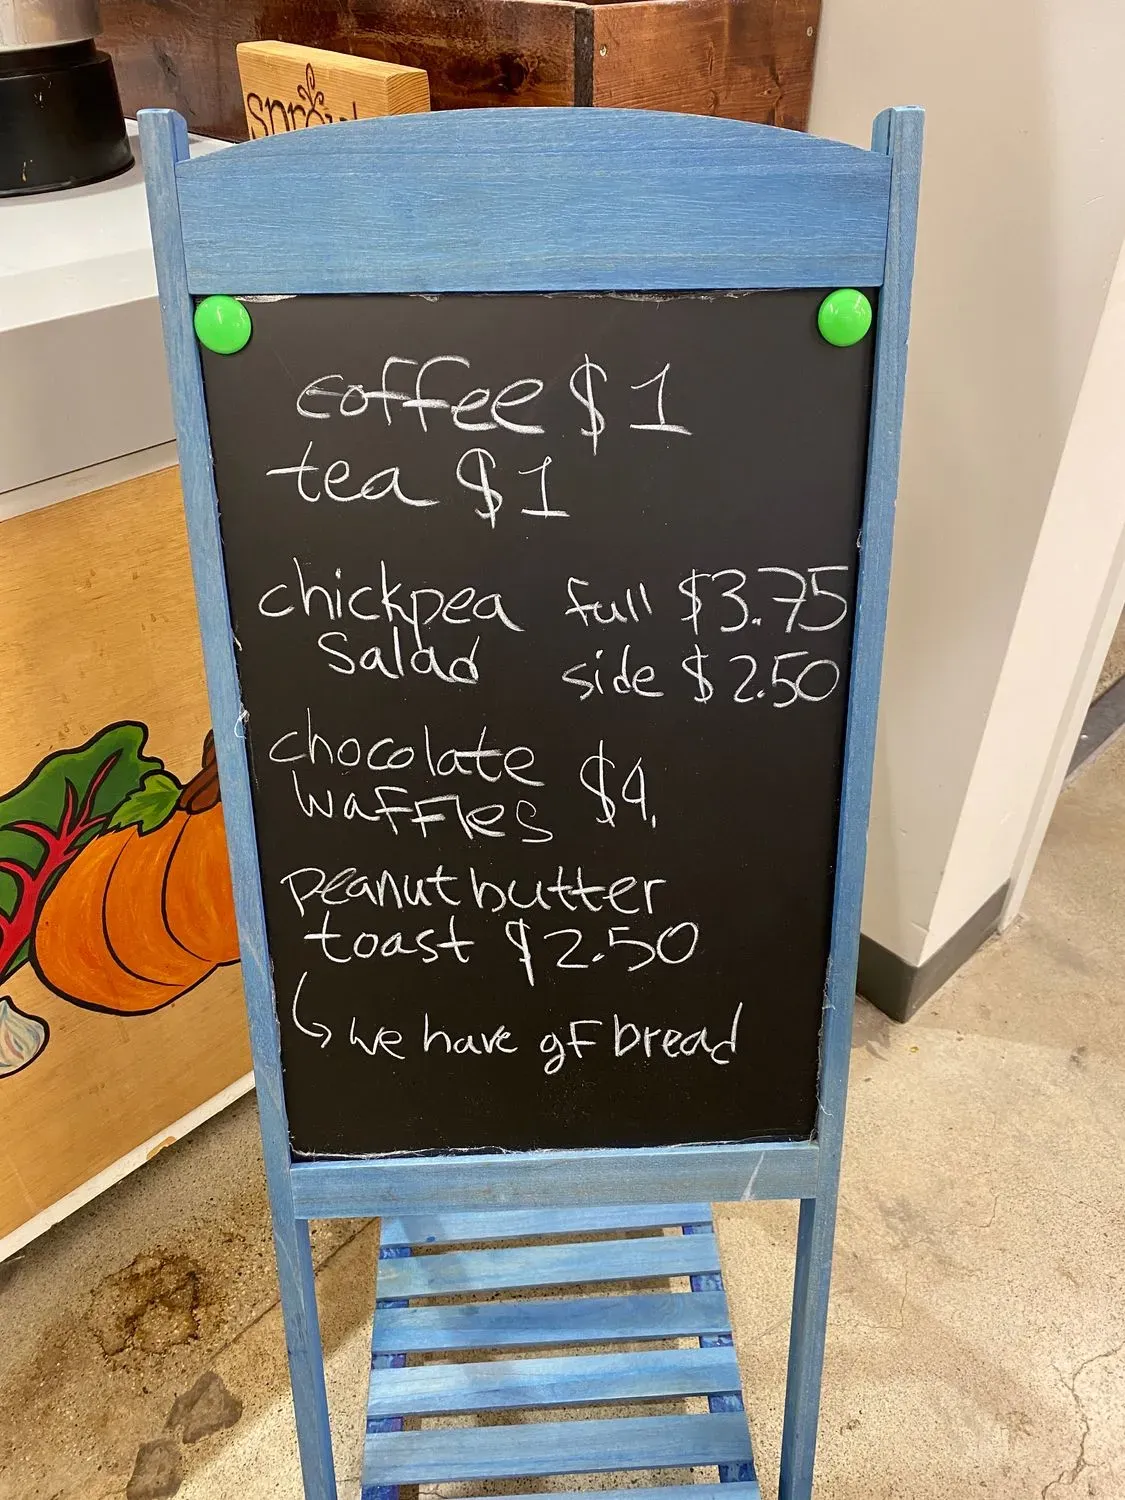 sprout
coffee $1
tea $1
chickpea full $3.75
salad side $2.50
chocolate
waffles $4.
peanut butter
toast $2.50
↳ we have gF bread